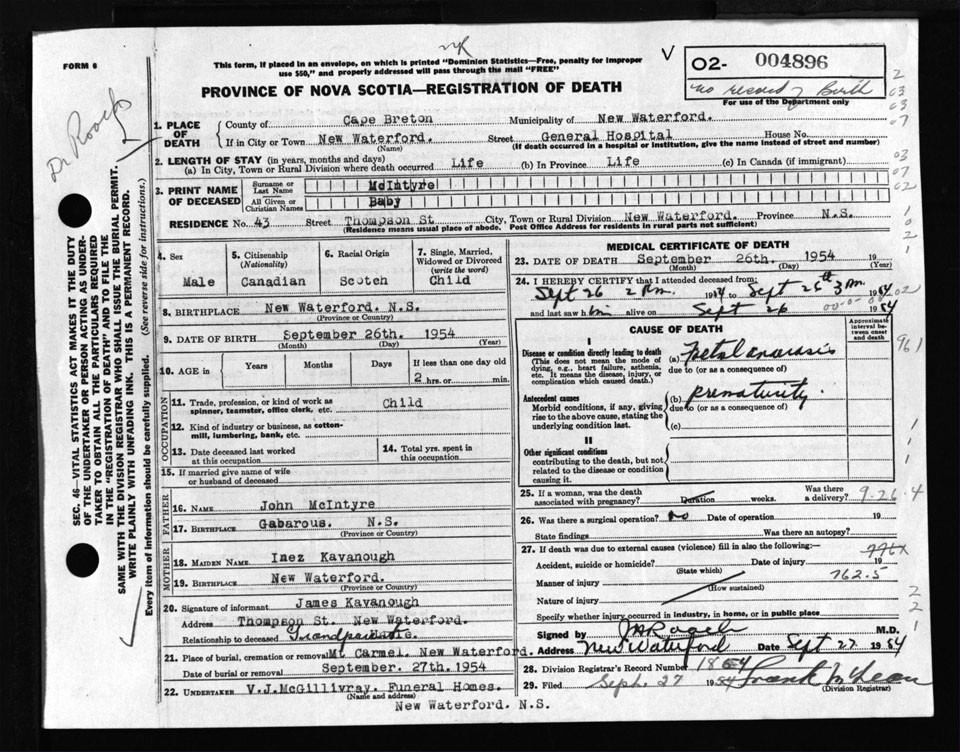 nR
FORM 6
This form, if placed in an envelope, on which is printed "Dominion Statistics—Free, penalty for improper
use $50," and properly addressed will pass through the mail "FREE"
V
O2- 004896
no record of Birth
For use of the Department only
PROVINCE OF NOVA SCOTIA—REGISTRATION OF DEATH
Dr Roach
1. PLACE OF DEATH
County of Cape Breton Municipality of New Waterford.
If in City or Town New Waterford. Street General Hospital House No.
(Name) (If death occurred in a hospital or institution, give the name instead of street and number)
2. LENGTH OF STAY (in years, months and days)
(a) In City, Town or Rural Division where death occurred Life (b) In Province Life (c) In Canada (if immigrant)
3. PRINT NAME OF DECEASED
Surname or Last Name McIntyre
All Given or Christian Names Baby
RESIDENCE No. 43 Street Thompson St City, Town or Rural Division New Waterford. Province N.S.
(Residence means usual place of abode. Post Office Address for residents in rural parts not sufficient)
4. Sex
Male
5. Citizenship
(Nationality)
Canadian
6. Racial Origin
Scotch
7. Single, Married,
Widowed or Divorced
(write the word)
Child
8. BIRTHPLACE New Waterford. N.S.
(Province or Country)
9. DATE OF BIRTH September 26th. 1954
(Month) (Day) (Year)
10. AGE in Years Months Days If less than one day old
2 hrs. or min.
OCCUPATION
11. Trade, profession, or kind of work as
spinner, teamster, office clerk, etc. Child
12. Kind of industry or business, as cotton-
mill, lumbering, bank, etc.
13. Date deceased last worked
at this occupation
14. Total yrs. spent in
this occupation
15. If married give name of wife
or husband of deceased
FATHER
16. NAME John McIntyre
17. BIRTHPLACE Gabarous. N.S.
(Province or Country)
MOTHER
18. MAIDEN NAME Inez Kavanough
19. BIRTHPLACE New Waterford.
(Province or Country)
20. Signature of informant James Kavanough
Address Thompson St. New Waterford.
Relationship to deceased
21. Place of burial, cremation or removal Mt Carmel. New Waterford.
Date of burial or removal September. 27th.1954
22. UNDERTAKER V.J.McGillivray. Funeral Homes.
(Name and address)
New Waterford. N.S.
MEDICAL CERTIFICATE OF DEATH
23. DATE OF DEATH September 26th. 1954 19
(Month) (Day) (Year)
24. I HEREBY CERTIFY that I attended deceased from:
Sept 26 2 P.m. 1954 to Sept 26th 3 P.m. 1954
and last saw him alive on Sept 26 1954
CAUSE OF DEATH
Approximate interval between onset and death
I
Disease or condition directly leading to death
(This does not mean the mode of
dying, e.g., heart failure, asthenia,
etc. It means the disease, injury, or
complication which caused death.)
(a) Foetal
due to (or as a consequence of)
Antecedent causes
Morbid conditions, if any, giving
rise to the above cause, stating the
underlying condition last.
(b) prematurity.
due to (or as a consequence of)
(c)
II
Other significant conditions
contributing to the death, but not
related to the disease or condition
causing it.
25. If a woman, was the death
associated with pregnancy? Duration weeks. Was there
a delivery? 9-26-4
26. Was there a surgical operation? no Date of operation 19
State findings Was there an autopsy?
27. If death was due to external causes (violence) fill in also the following:—
776X
Accident, suicide or homicide? Date of injury 19
(State which)
762.5
Manner of injury
(How sustained)
Nature of injury
Specify whether injury occurred in industry, in home, or in public place
Signed by J A Roach M.D.
Address New Waterford Date Sept 27 1954
28. Division Registrar's Record Number
29. Filed Sept. 27 1954 Frank McLean
(Division Registrar)
SEC. 46—VITAL STATISTICS ACT MAKES IT THE DUTY
OF THE UNDERTAKER OR PERSON ACTING AS UNDER-
TAKER TO OBTAIN ALL THE PARTICULARS REQUIRED
IN THE "REGISTRATION OF DEATH" AND TO FILE THE
SAME WITH THE DIVISION REGISTRAR WHO SHALL ISSUE THE BURIAL PERMIT.
WRITE PLAINLY WITH UNFADING INK. THIS IS A PERMANENT RECORD.
Every item of information should be carefully supplied. (See reverse side for instructions.)
2
03
03
07
03
07
02
1
0
2
1
02
961
1
1
1
2
2
1